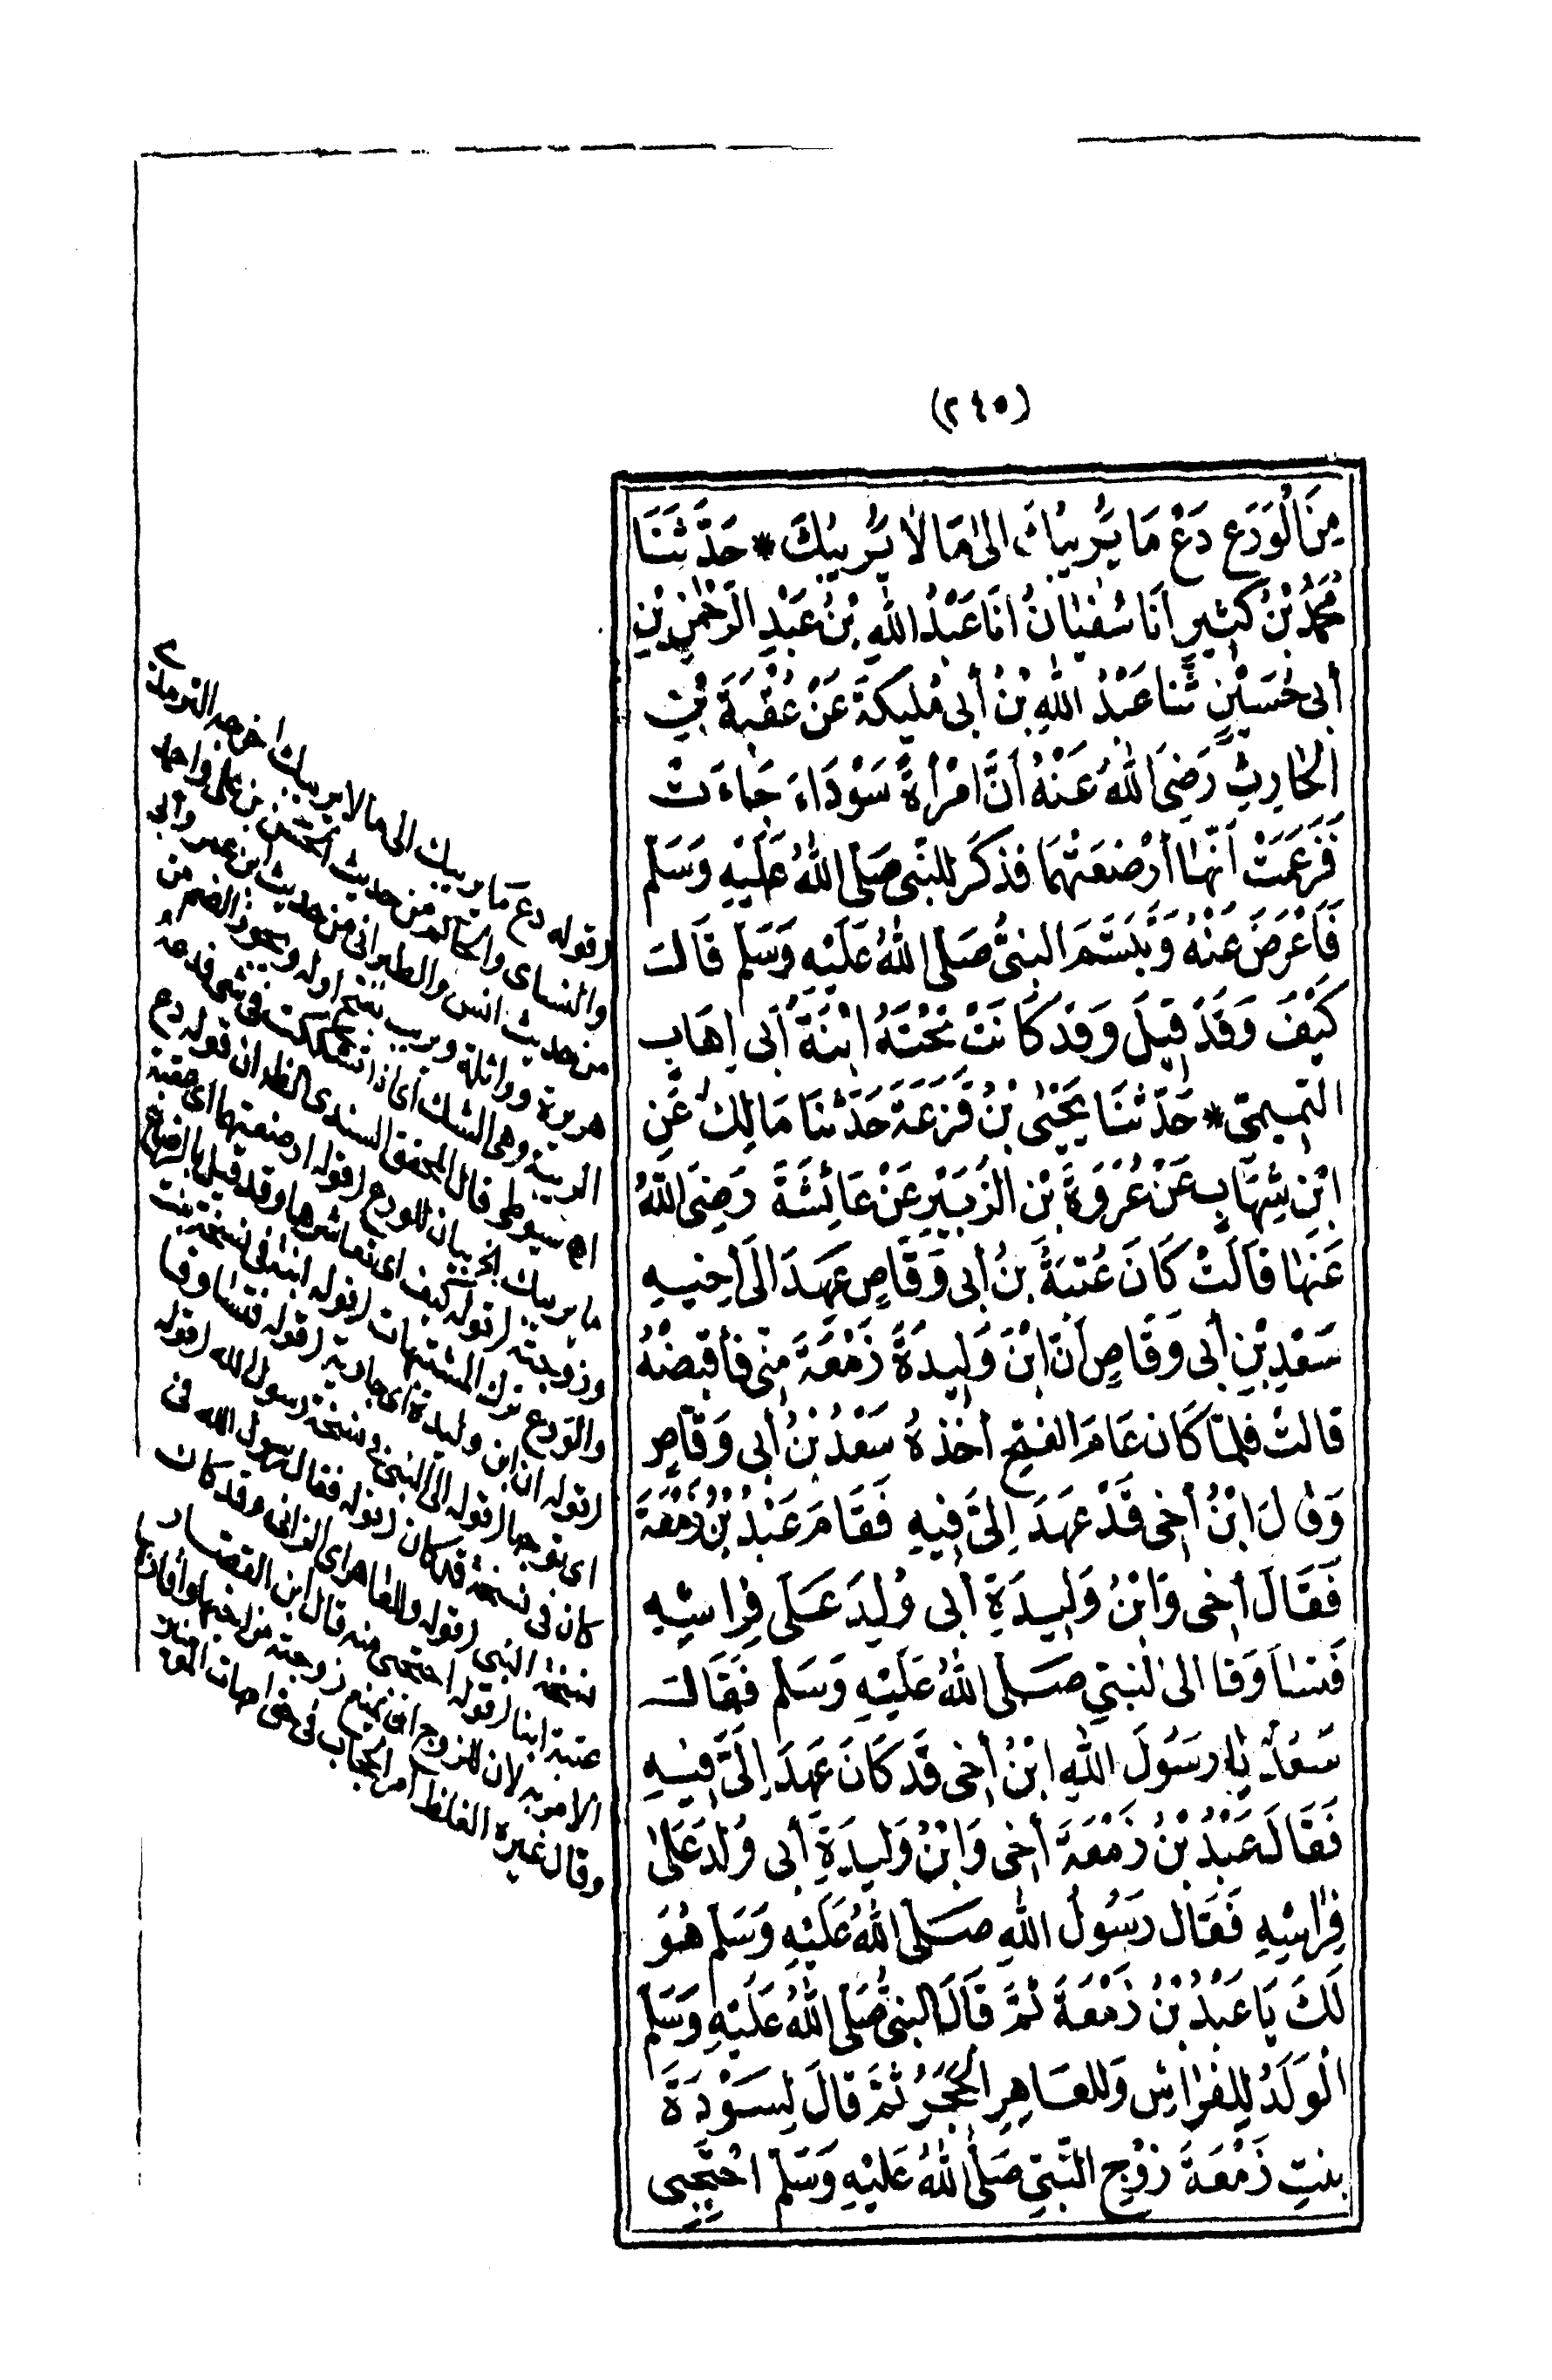 (٢٤٥)
مِنَ الْوَرَعِ دَعْ مَا يَرِيبُكَ اِلىٰ مَا لَا يَرِيبُكَ * حَدَّثَنَا
مُحَمَّدُ بْنُ كَثِيرٍ اَنَا سُفْيَانُ اَنَا عَبْدُ اللهِ بْنُ عَبْدِ الرَّحْمٰنِ بْنِ
أَبى حُسَيْنٍ ثَنا عَبْدُ اللهِ بْنُ أَبى مُلَيْكَةَ عَنْ عُقْبَةَ بْنِ
الْحَارِثِ رَضِىَ اللهُ عَنْهُ أَنَّ امْرَأَةً سَوْدَاءَ جَاءَتْ
فَزَعَمَتْ أَنَّهَا أَرْضَعَتْهُمَا فَذَكَرَ لِلنَّبِىِّ صَلَّى اللهُ عَلَيْهِ وَسَلَّمَ
فَأَعْرَضَ عَنْهُ وَتَبَسَّمَ النَّبِىُّ صَلَّى اللهُ عَلَيْهِ وَسَلَّمَ قَالَ
كَيْفَ وَقَدْ قِيلَ وَقَدْ كَانَتْ تَحْتَهُ ابْنَةُ أَبى اِهَابٍ
التَّمِيمِىِّ * حَدَّثَنَا يَحْيَى بْنُ قَزَعَةَ حَدَّثَنَا مَالِكٌ عَنِ
ابْنِ شِهَابٍ عَنْ عُرْوَةَ بْنِ الزُّبَيْرِ عَنْ عَائِشَةَ رَضِىَ اللهُ
عَنْهَا قَالَتْ كَانَ عُتْبَةُ بْنُ أَبى وَقَّاصٍ عَهِدَ اِلَى أَخِيهِ
سَعْدِ بْنِ أَبى وَقَّاصٍ اَنَّ ابْنَ وَلِيدَةِ زَمْعَةَ مِنِّى فَاقْبِضْهُ
قَالَتْ فَلَمَّا كَانَ عَامَ الْفَتْحِ أَخَذَهُ سَعْدُ بْنُ أَبى وَقَّاصٍ
وَقَالَ ابْنُ أَخِى قَدْ عَهِدَ اِلَىَّ فِيهِ فَقَامَ عَبْدُ بْنُ زَمْعَةَ
فَقَالَ أَخِى وَابْنُ وَلِيدَةِ أَبى وُلِدَ عَلَى فِرَاشِهِ
فَتَسَاوَقَا اِلَى النَّبِىِّ صَلَّى اللهُ عَلَيْهِ وَسَلَّمَ فَقَالَ
سَعْدٌ يَا رَسُولَ اللهِ ابْنُ أَخِى قَدْ كَانَ عَهِدَ اِلَىَّ فِيهِ
فَقَالَ عَبْدُ بْنُ زَمْعَةَ أَخِى وَابْنُ وَلِيدَةِ أَبى وُلِدَ عَلَى
فِرَاشِهِ فَقَالَ رَسُولُ اللهِ صَلَّى اللهُ عَلَيْهِ وَسَلَّمَ هُوَ
لَكَ يَا عَبْدُ بْنُ زَمْعَةَ ثُمَّ قَالَ النَّبِىُّ صَلَّى اللهُ عَلَيْهِ وَسَلَّمَ
الْوَلَدُ لِلْفِرَاشِ وَلِلْعَاهِرِ الْحَجَرُ ثُمَّ قَالَ لِسَوْدَةَ
بِنْتِ زَمْعَةَ زَوْجِ النَّبِىِّ صَلَّى اللهُ عَلَيْهِ وَسَلَّمَ احْتَجِبِى
(قوله دع ما يريبك الى ما لا يريبك) اخرجه الترمذى
والنساى والحاكم من حديث الحسن بن على واحمد
من حديث انس والطبرانى من حديث ابن عمر وأبى
هريرة وواثلة ويريب بفتح اوله ويجوز الضم من
الريبة وهى الشك أى اذا تشككت فى شئ فدعه
اه سيوطى قال المحقق السندى الظاهر ان قوله دع
ما يريبك الخ بيان للورع (قوله ارضعتهما) اى عقبة
وزوجته (قوله كيف) اى تعاشرها وقد قيل بالرضاع
والورع ترك المشتبهات (قوله ابنة) فى نسخة بنت
(قوله ان ابن وليدة) اى جارية (قوله فتساوقا)
اى توجها (قوله الى النبى) فى نسخة رسول الله (قوله
كان) فى نسخة قد كان (قوله فقال رسول الله) فى
نسخة النبى (قوله وللعاهر) اى الزانى وقد كان
عتبة زانيا (قوله احتجبى منه) قال ابن القصار
لان للزوج ان يمنع زوجته من اخيها
وقال غيره الغلظ أمر الحجاب فى حق امهات